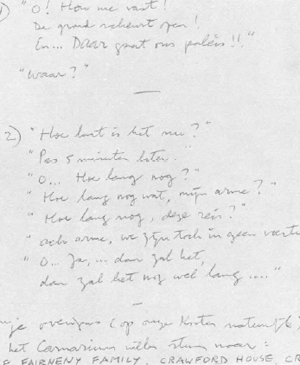 1) "O! Hou me vast!
De grond scheurt open!
En... Daar gaat ons paleis!!"
"Waar?"
2) "Hoe laat is het nu?"
"Pas 5 minuten later."
"O... Hoe lang nog?"
"Hoe lang nog wat, mijn arme?"
"Hoe lang nog, deze reis?"
"ach arme, we zijn toch in geen
"O.. Ja,... dan zal het,
dan zal het nog wel lang...."
overigens (op onze kosten natuurlijk)
het stuur naar:
FAIRNENY FAMILY, CRAWFORD HOUSE,